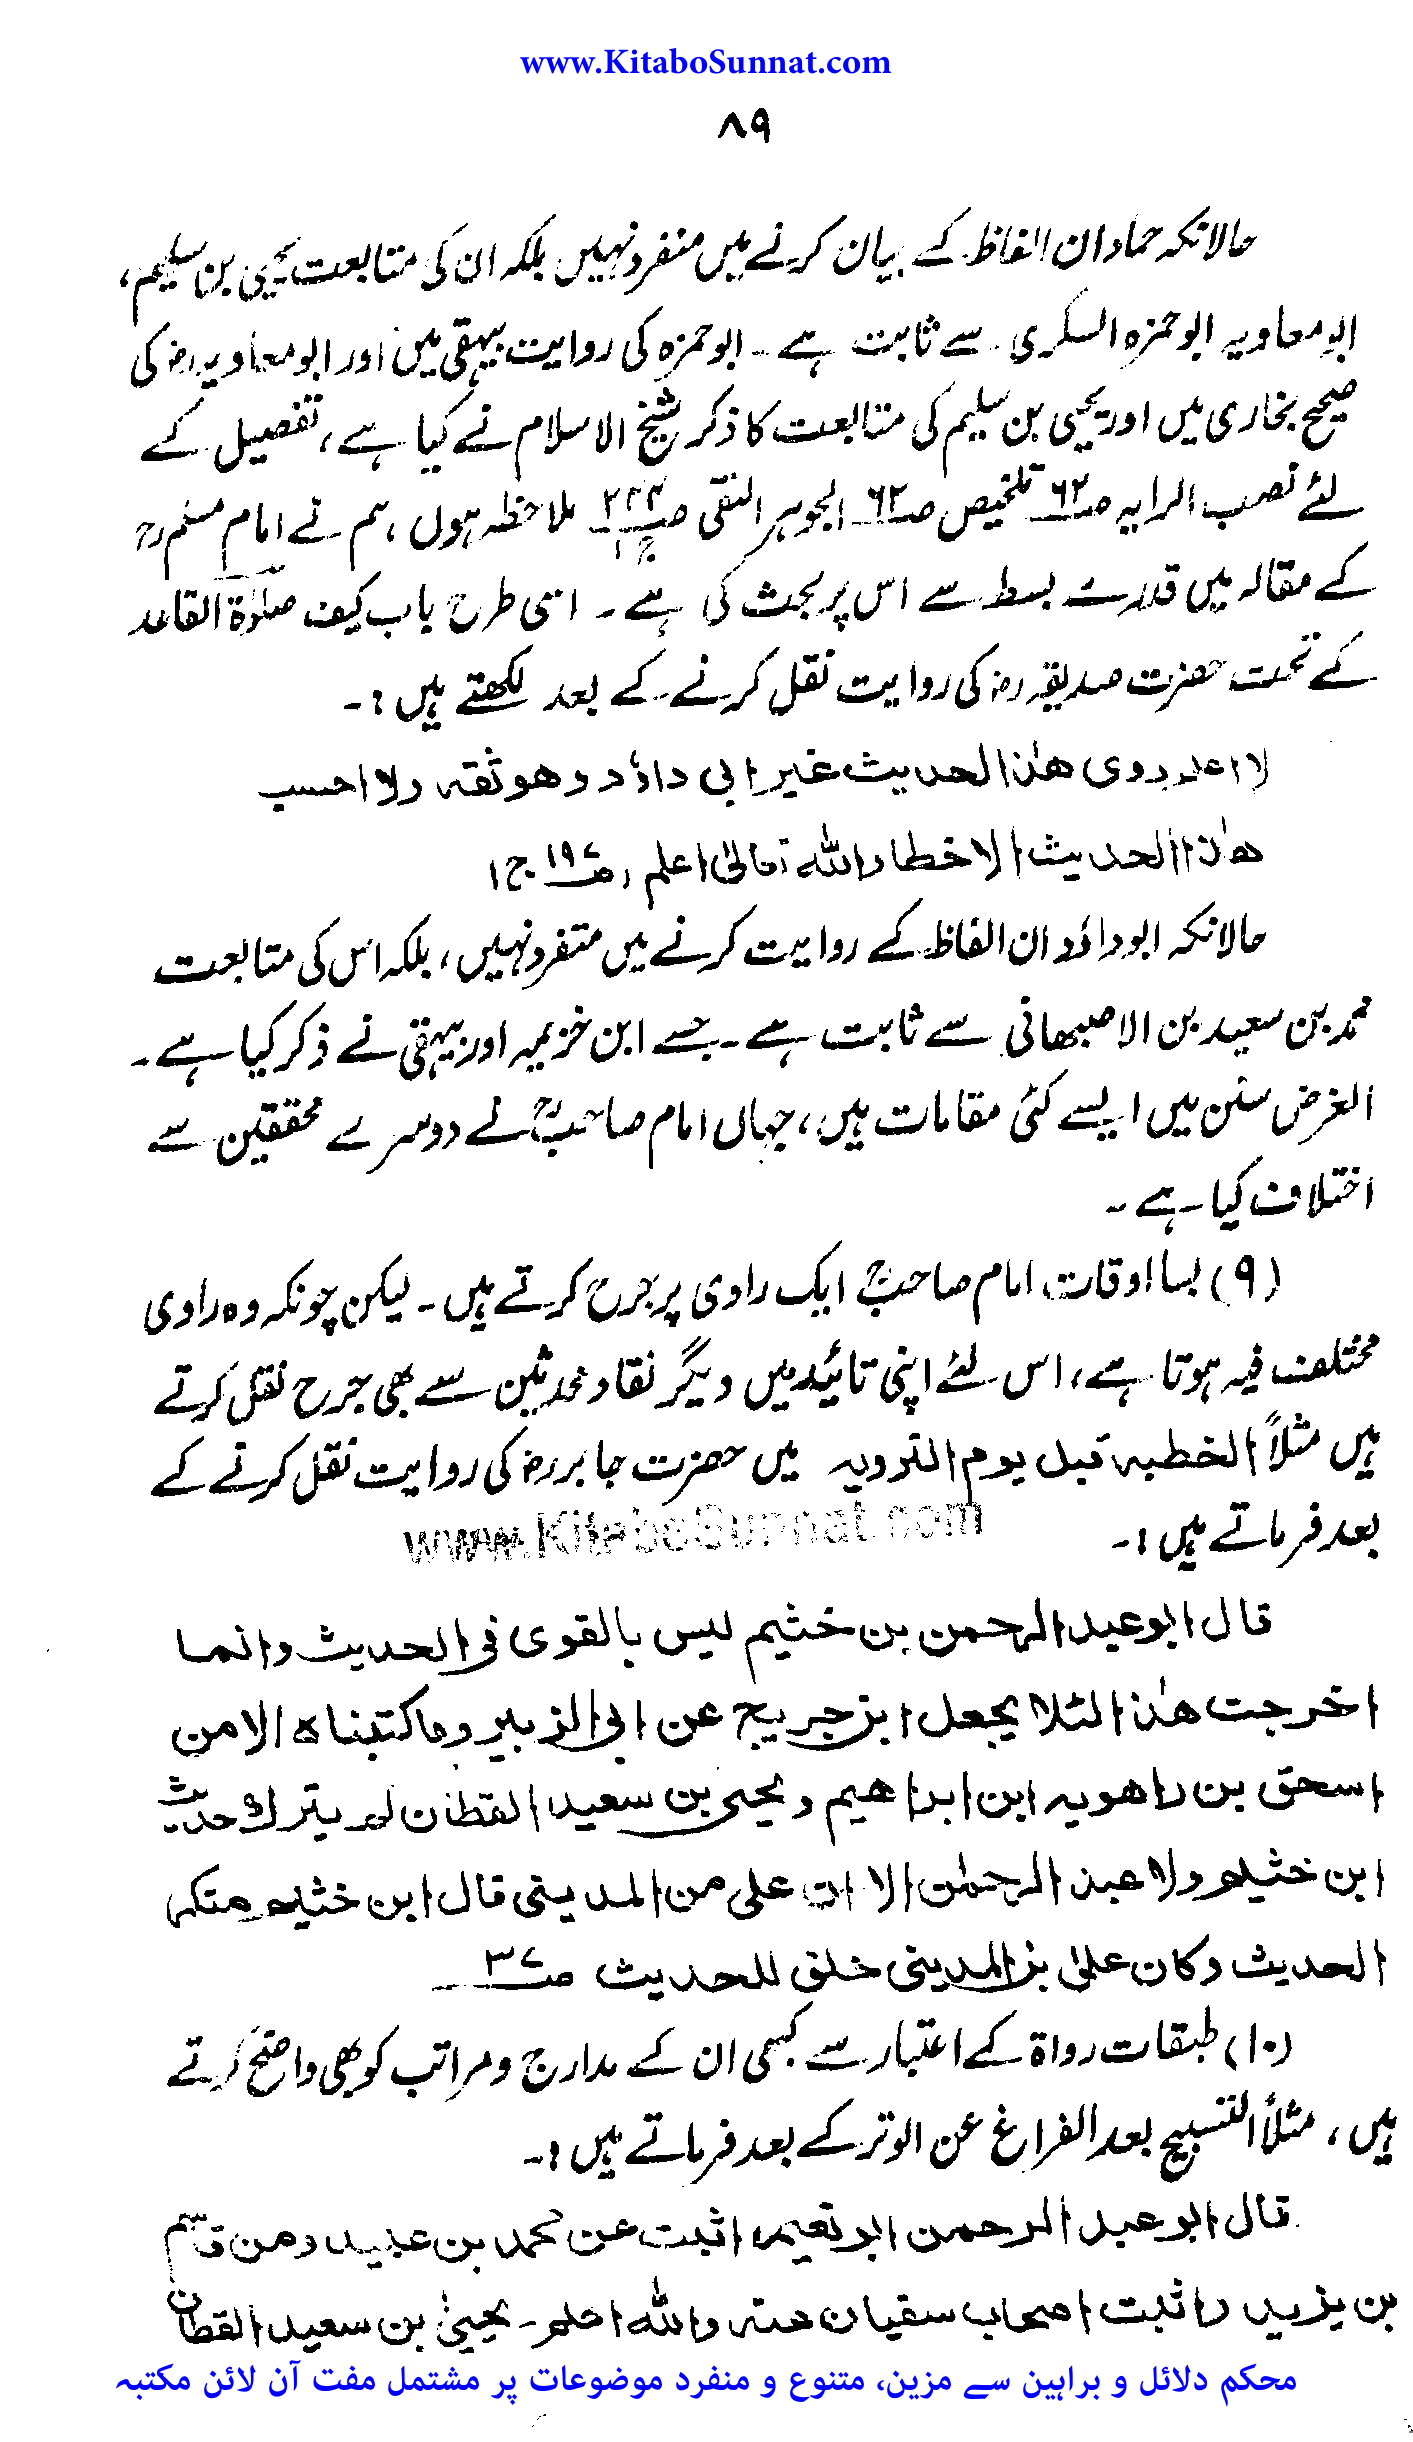 www.KitaboSunnat.com
۸۹
حالانکہ حماد ان الفاظ کے بیان کرنے میں منفرد نہیں بلکہ ان کی متابعت یحیی بن سلیم،
ابومعاویہ ابوحمزہ السکری سے ثابت ہے ۔ ابوحمزہ کی روایت بیہقی میں اور ابومعاویہ رض کی
صحیح بخاری میں اور یحیی بن سلیم کی متابعت کا ذکر شیخ الاسلام نے کیا ہے، تفصیل کے
لئے نصب الرایہ صـ۶۲ تلخیص صـ۶۲ الجوہر النقی صـ۲۳۳ ج۱ ملاحظہ ہوں، ہم نے امام مسلم رح
کے مقالہ میں قدرے بسط سے اس پر بحث کی ہے ۔ اسی طرح باب کیف صلوٰۃ القاعد
کے تحت حضرت صدیقہ رض کی روایت نقل کرنے کے بعد لکھتے ہیں :۔
لا اعلم روی ھٰذا الحدیث غیر ابی داؤد وھو ثقہ ولا احسب
ھٰذا الحدیث الا خطا واللہ تعالیٰ اعلم (صـ۱۹۷ ج ۱
حالانکہ ابوداؤد ان الفاظ کے روایت کرنے میں متفرد نہیں، بلکہ اس کی متابعت
محمد بن سعید بن الاصبھانی سے ثابت ہے ۔ جسے ابن خزیمہ اور بیہقی نے ذکر کیا ہے ۔
الغرض سنن میں ایسے کئی مقامات ہیں، جہاں امام صاحبؒ نے دوسرے محققین سے
اختلاف کیا ہے ۔
(۹) بسا اوقات امام صاحبؒ ایک راوی پر جرح کرتے ہیں ۔ لیکن چونکہ وہ راوی
مختلف فیہ ہوتا ہے، اس لئے اپنی تائید میں دیگر نقاد محدثین سے بھی جرح نقل کرتے
ہیں مثلاً الخطبہ قبل یوم الترویہ میں حضرت جابر رض کی روایت نقل کرنے کے
بعد فرماتے ہیں :۔
www.KitaboSunnat.com
قال ابوعبد الرحمن بن خثیم لیس بالقوی فی الحدیث وانما
اخرجت ھٰذا لئلا یجعل ابن جریج عن ابی الزبیر وما کتبناہ الا من
اسحق بن راھویہ ابن ابراھیم و یحیی بن سعید القطان لم یترک حدیث
ابن خثیم ولا عبد الرحمٰن الا ان علی من المدینی قال ابن خثیم منکر
الحدیث وکان علیٰ بن المدینی خلق للحدیث صـ۳۷
(۱۰) طبقات رواۃ کے اعتبار سے کبھی ان کے مدارج و مراتب کو بھی واضح کرتے
ہیں، مثلاً التسبیح بعد الفراغ عن الوتر کے بعد فرماتے ہیں :۔
قال ابوعبد الرحمن ابونعیم اثبت عن محمد بن عبید ومن قاسم
بن یزید واثبت اصحاب سفیان عنہ واللہ اعلم ۔ یحییٰ بن سعید القطان
محکم دلائل و براہین سے مزین، متنوع و منفرد موضوعات پر مشتمل مفت آن لائن مکتبہ